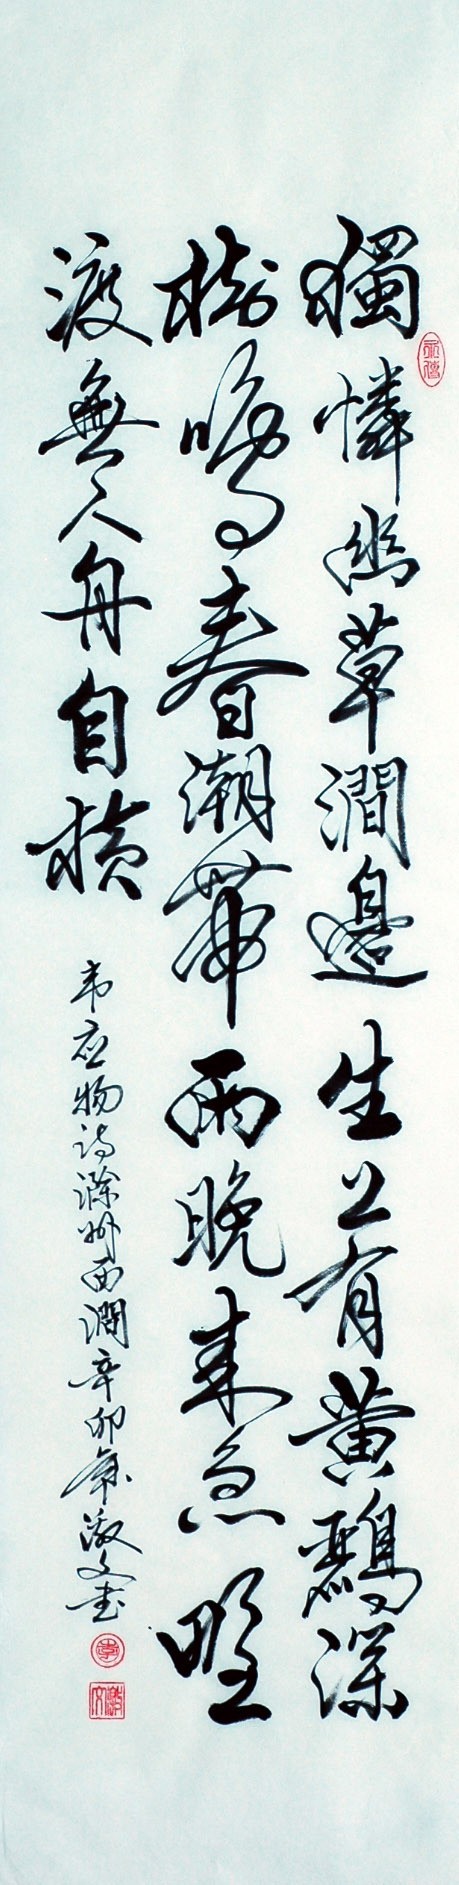 獨憐幽草澗邊生上有黄鸝深
樹鳴春潮帶雨晚來急野
渡無人舟自横
韦应物诗滁州西澗辛卯年文书
李